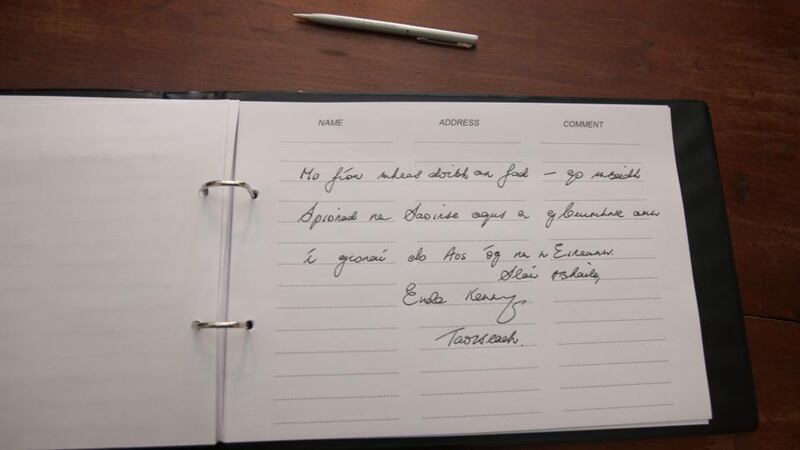 NAME ADDRESS COMMENT
Mo fíor mheas doibh an fad – go mbeidh
Spioraid na Saoirse agus a gCuimhne ann
í gconaí do Aos óg na h Éireann.
Slán abhaile,
Enda Kenny
Taoiseach.